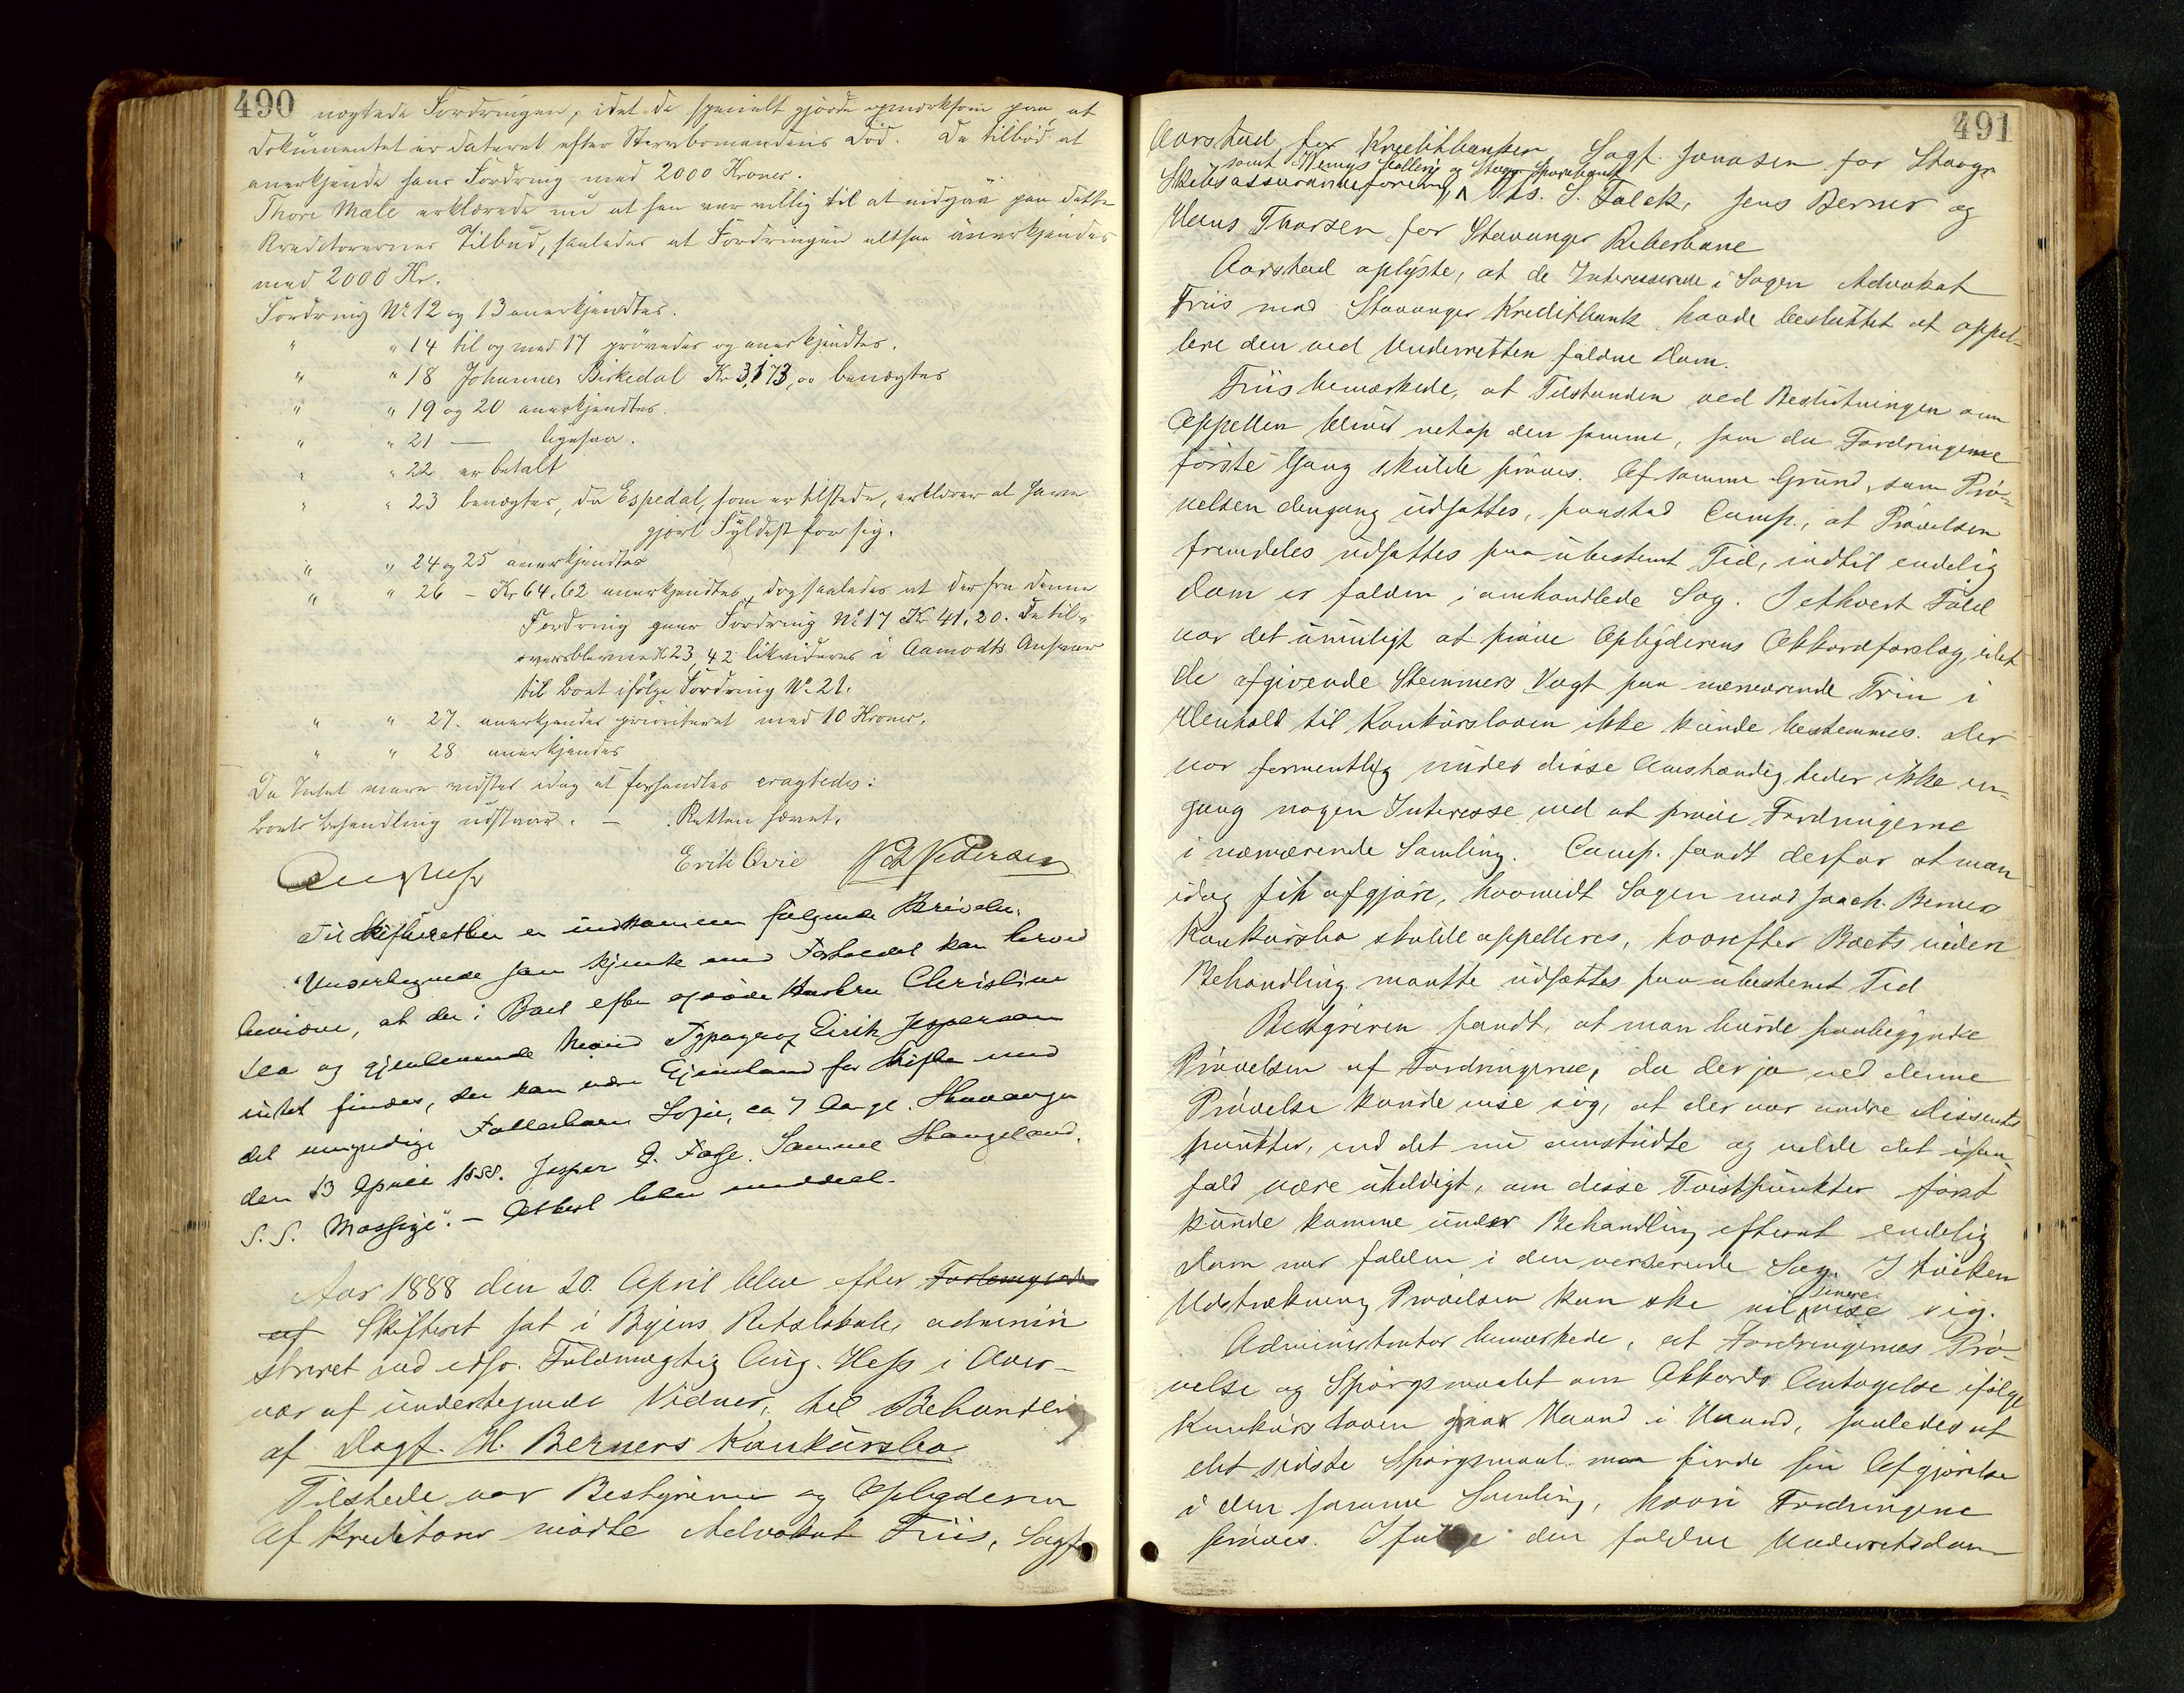 490
nægtede Fordringen, idet de specielt gjorde opmærksom paa, at
Dokumentet er dateret efter Stervbomandens Död. De tilböd at
anerkjende hans Fordring med 2000 Kroner.
Thore Mæle erklærede nu at han var villig til at indgaa paa dette
Kreditorernes Tilbud, saaledes at Fordringen altsaa anerkjendes
med 2000 Kr.
Fordring No 12 og 13 anerkjendtes.
" " 14 til og med 17 prövedes og anerkjendtes.
" " 18 Johannes Birkedal Kr 3,173,00 benægtes
" " 19 og 20 anerkjendtes.
" " 21 — ligesaa.
" " 22 er betalt
" " 23 benægtes, da Espedal, som er tilstede, erklærer at have
gjort Fyldest for sig.
" " 24 og 25 anerkjendtes
" " 26 - Kr 64,62 anerkjendtes, dog saaledes at der fra denne
Fordring gaar Fordring No 17 Kr 41,20. De til-
oversblevne K 23,42 likvideres i Aamodts Ansvar
til Boet ifölge Fordring No 21.
" " 27. anerkjendes prioriteret med 10 Kroner.
" " 28 anerkjendes
Da Intet mere vidstes idag at forhandles eragtedes:
Boets Behandling udstaar. — Retten hævet.
Erik Qvie
Til Skifteretten er indkommen følgende Skrivelse:
"Undertegnede som kjendte med Forholdet kan herved
bevidne, at der i Boet efter afdöde Hustru Christine
Lea og gjenlevende Mand Typograf Eirik Jespersen
intet findes, der kan være Gjenstand for Skifte med
det umyndige Fællesbarn Sofie, ca 7 Aar gl. Stavanger
den 13 April 1888. Jesper A. Fosse. Samuel Stangeland.
S. S. Mossige". — Attest blev meddelt.
Aar 1888 den 20. April blev efter Forlangende
af Skifteret sat i Byens Retslokale admini
streret ved edsv. Fuldmægtig Aug. Hess i Over-
vær af undertegnede Vidner, til Behandling
af Dagf. H. Berners Konkursbo.
Tilstede var Bestyreren og Opbyderen
Af Kreditorer mödte Advokat Friis, Sagf.
491
Aarstad for Kreditbanken Sagf. Jonasen for Stavgr
samt Henrys Stolling og Stavgr Sparebank
Skibsassuranceforening, Ths. S. Falck, Jens Berner og
Hans Thorsen for Stavanger Reberbane
Aarstad oplyste, at de Interesserede i Sagen Advokat
Friis mod Stavanger Kreditbank havde besluttet at appel-
lere den ved Underretten faldne Dom.
Friis bemærkede, at Tilstanden ved Beslutningen om
Appellen blivit netop den samme, som da Fordringerne
förste Gang skulde pröves. Af samme Grund, som Prö-
velsen dengang udsattes, paastod Comp., at Prövelsen
fremdeles udsattes paa ubestemt Tid, indtil endelig
Dom er falden i omhandlede Sag. I ethvert Fald
var det umuligt at pröve Opbyderens Akkordforslag, idet
de afgivende Stemmers Vægt paa nærværende Trin i
Henhold til Konkursloven ikke kunde bestemmes. Der
var formentlig under disse Omstændigheder ikke en-
gang nogen Interesse ved at pröve Fordringerne
i nærværende Samling. Comp. fandt derfor at man
idag fik afgjöre, hvorvidt Sagen mod Joach. Berners
Konkursbo skulde appelleres, hvorefter Boets videre
Behandling maatte udsættes paa ubestemt Tid
Bestyreren fandt, at man burde paabegynde
Prövelsen af Fordringerne, da der jo ved denne
Prövelse kunde vise sig, at der var andre Dissents
punkter, end det nu omstridte og vilde det isaa
fald være uheldigt, om disse Tvistpunkter först
kunde komme under Behandling efterat endelig
Dom var falden i den verserende Sag. I hvilken
Udstrækning Prövelsen kan ske vil senere vise sig.
Administrator bemærkede, at Fordringernes Prö-
velse og Spörgsmaalet om Akkords Antagelse ifölge
Konkursloven gaar Haand i Haand, saaledes at
det sidste Spörgsmaal maa finde sin Afgjörelse
i den samme Samling, hvori Fordringerne
pröves. Ifölge den faldne Underretsdom